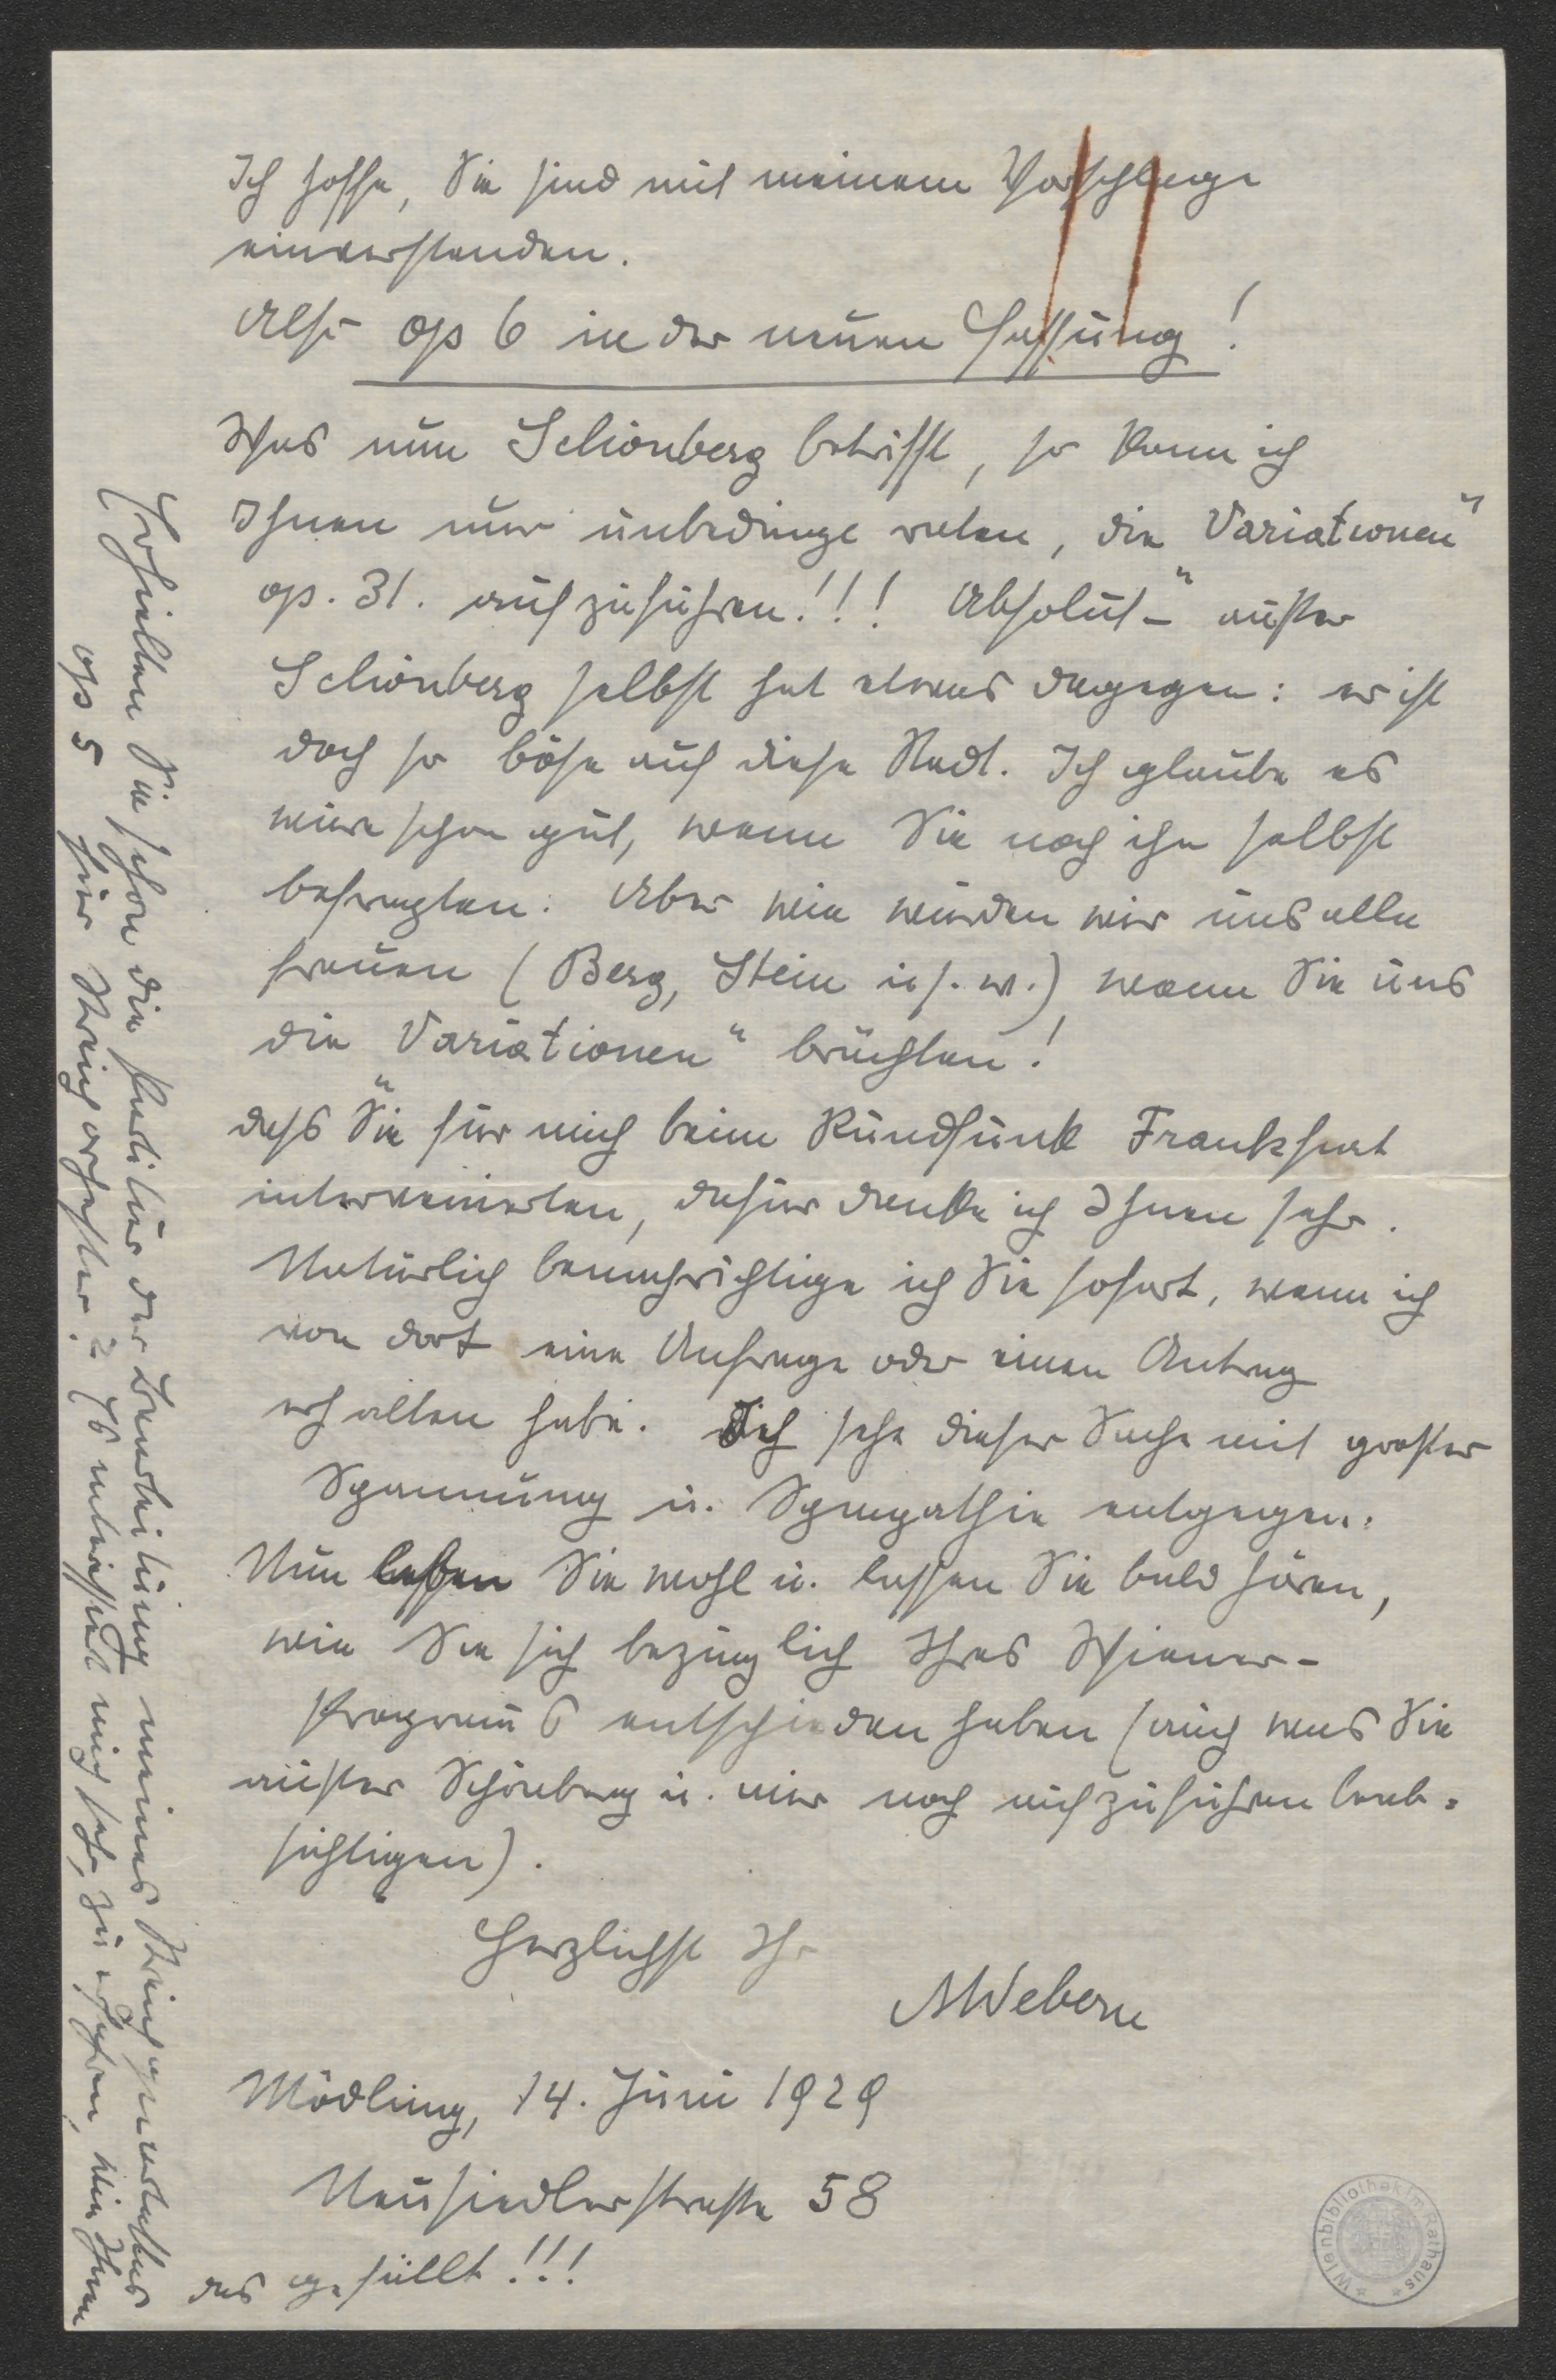 Ich hoffe, Sie sind mit meinem Vorschlage
einverstanden.
Also op 6 in der neuen Fassung!
Was nun Schönberg betrifft, so kann ich
Ihnen nur unbedingt raten, die „Variationen"
op. 31. aufzuführen!!! Absolut – außer
Schönberg selbst hat etwas dagegen: er ist
doch so böse auf diese Stadt. Ich glaube es
wäre schon gut, wenn Sie noch ihn selbst
befragten. Aber wie würden wir uns alle
freuen (Berg, Stein u. s. w.) wenn Sie uns
die „Variationen" brächten!
dass Sie für mich beim Rundfunk Frankfurt
intervenierten, dafür danke ich Ihnen sehr.
Natürlich benachrichtige ich Sie sofort, wenn ich
von dort eine Anfrage oder einen Antrag
erhalten habe. Ich sehe dieser Sache mit großer
Spannung u. Sympathie entgegen.
Nun leben Sie wohl u. lassen Sie bald hören,
wie Sie sich bezüglich Ihres Wiener-
Programms entschieden haben (auch was Sie
außer Schönberg u. mir noch aufzuführen beab-
sichtigen).
Herzlichst Ihr
AWebern
Mödling, 14. Juni 1929
Neusiedlerstraße 58
Erhielten Sie schon die Partitur der Bearbeitung meines Streichquartettes
op 5 für Streichorchester? Es interessiert mich sehr, zu erfahren, wie Ihnen
das gefällt!!!
Wienbibliothek im Rathaus